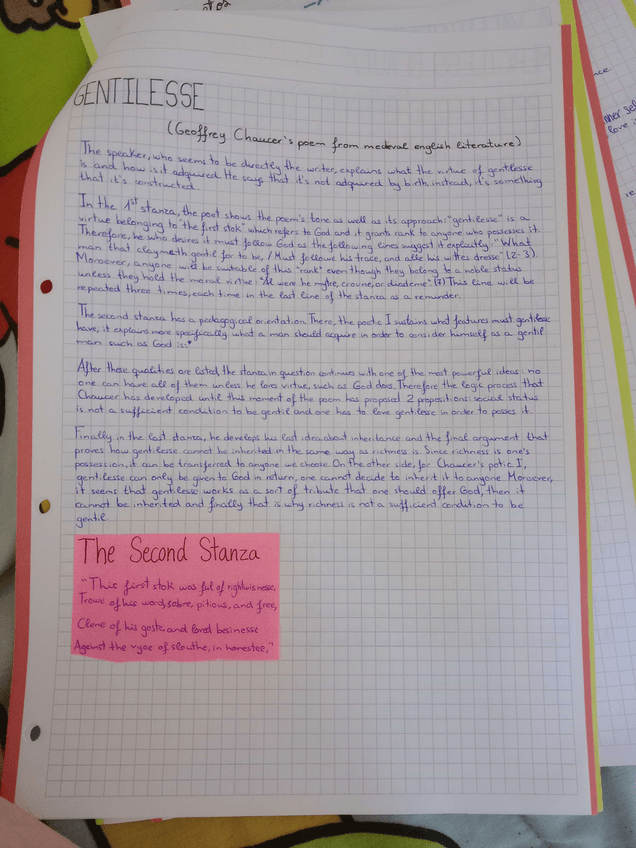 GENTILESSE
(Geoffrey Chaucer's poem from medeval english literature)
The speaker, who seems to be directly the writer, explains what the virtue of gentilesse
is and how is it adquired. He says that it's not adquired by birth instead, it's something
that it's constructed.
In the 1st stanza, the poet shows the poem's tone as well as its approach: "gentilesse" is a
virtue belonging to "the first stok" which refers to God and it grants rank to anyone who possesses it.
Therefore, he who desires it must follow God as the following lines suggest it explicitly: "What
man that claymeth gentil for to be, / Must followe his trace, and alle his wittes dresse" (2-3).
Moroever, anyone will be suitable of this "rank" even though they belong to a noble status
unless they hold the moral virtue: "Al were he mytre, croune, or diademe" (7) This line will be
repeated three times, each time in the last line of the stanza as a reminder.
The second stanza has a pedagogical orientation. There, the poetic I sustains what features must gentilesse
have, it explains more specifically what a man should acquire in order to consider himself as a gentil
man such as God is:*
After these qualities are listed, the stanza in question continues with one of the most powerful ideas: no
one can have all of them unless he loves virtue, such as God does. Therefore the logic process that
Chaucer has developed until this moment of the poem has proposed 2 propositions: social status
is not a sufficient condition to be gentil and one has to love gentilesse in order to posses it.
Finally in the last stanza, he develops his last idea about inheritance and the final argument that
proves how gentilesse cannot be inherited in the same way as richness is. Since richness is one's
possession, it can be transferred to anyone we choose. On the other side, for Chaucer's potic I,
gentilesse can only be given to God in return, one cannot decide to inherit it to anyone. Moroever,
it seems that gentilesse works as a sort of tribute that one should offer God, then it
cannot be inherited and finally that is why richness is not a sufficient condition to be
gentil.
The Second Stanza
"This first stok was ful of rightwisnesse,
Trewe of his word, sobre, pitious, and free,
Clene of his goste, and loved besinesse
Against the vyce of slouthe, in honestee,"